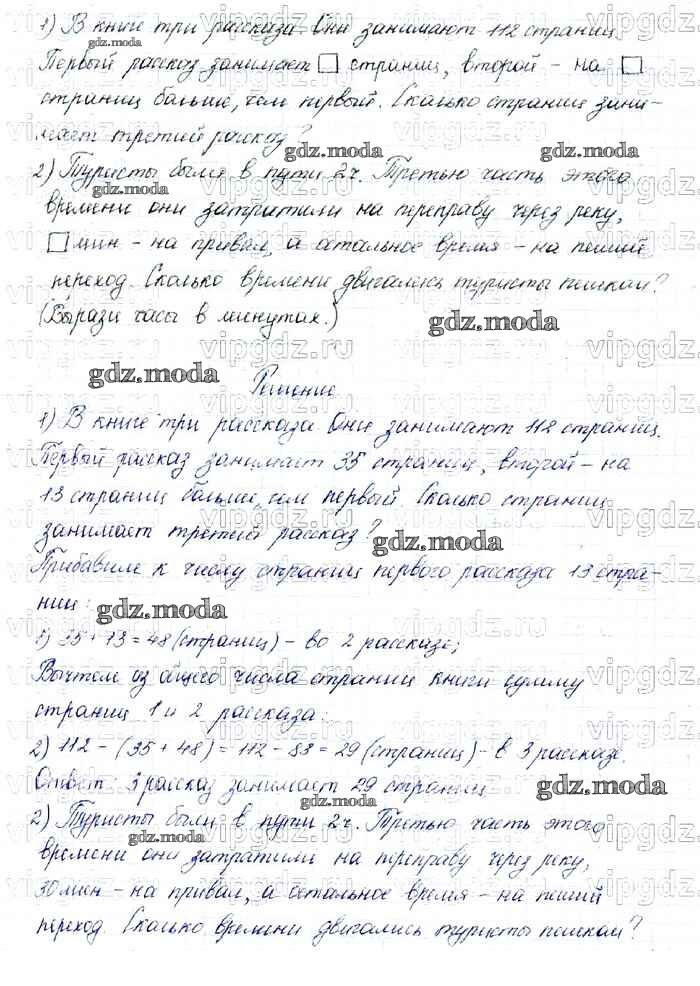 1) В книге три рассказа. Они занимают 112 страниц.
Первый рассказ занимает □ страниц, второй - на □
страниц больше, чем первый. Сколько страниц зани-
мает третий рассказ?
2) Туристы были в пути 2ч. Третью часть этого
времени они затратили на переправу через реку,
□ мин - на привал, а остальное время - на пеший
переход. Сколько времени двигались туристы пешком?
(Вырази часы в минутах.)
Решение
1) В книге три рассказа. Они занимают 112 страниц.
Первый рассказ занимает 35 страниц, второй - на
13 страниц больше, чем первый. Сколько страниц
занимает третий рассказ?
Прибавим к числу страниц первого рассказа 13 стра-
ниц:
1) 35 + 13 = 48 (страниц) - во 2 рассказе;
Вычтем из общего числа страниц книги сумму
страниц 1 и 2 рассказа:
2) 112 - (35 + 48) = 112 - 83 = 29 (страниц) - в 3 рассказе.
Ответ: 3 рассказ занимает 29 страниц.
2) Туристы были в пути 2ч. Третью часть этого
времени они затратили на переправу через реку,
30 мин - на привал, а остальное время - на пеший
переход. Сколько времени двигались туристы пешком?
gdz.moda
vipgdz.ru